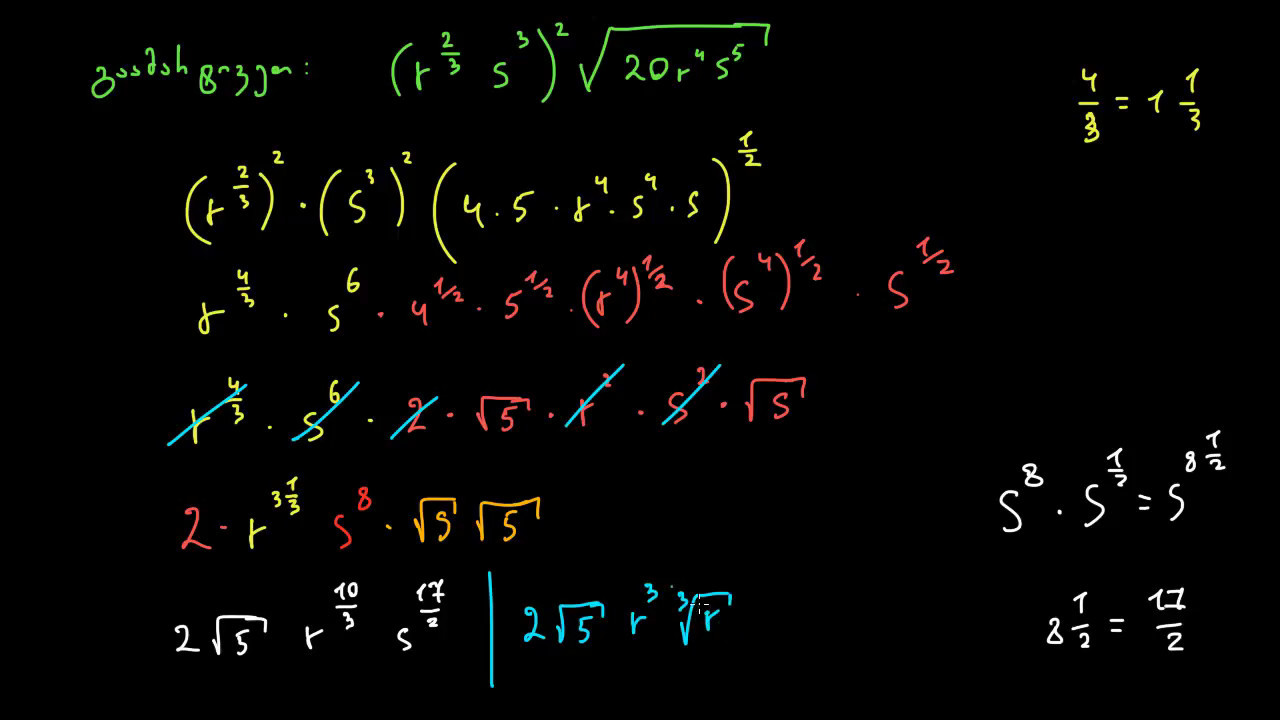 გაამარტივეთ: (r^{2/3} s^3)^2 √(20r^4 s^5)
4/3 = 1 1/3
(r^{2/3})^2 · (s^3)^2 (4 · 5 · r^4 · s^4 · s)^{1/2}
r^{4/3} · s^6 · 4^{1/2} · 5^{1/2} · (r^4)^{1/2} · (s^4)^{1/2} · s^{1/2}
r^{4/3} · s^6 · 2 · √5 · r^2 · s^2 · √s
s^8 · s^{1/2} = s^{8 1/2}
2 · r^{3 1/3} s^8 · √s √5
2√5 r^{10/3} s^{17/2} | 2√5 r^3 ∛r
8 1/2 = 17/2